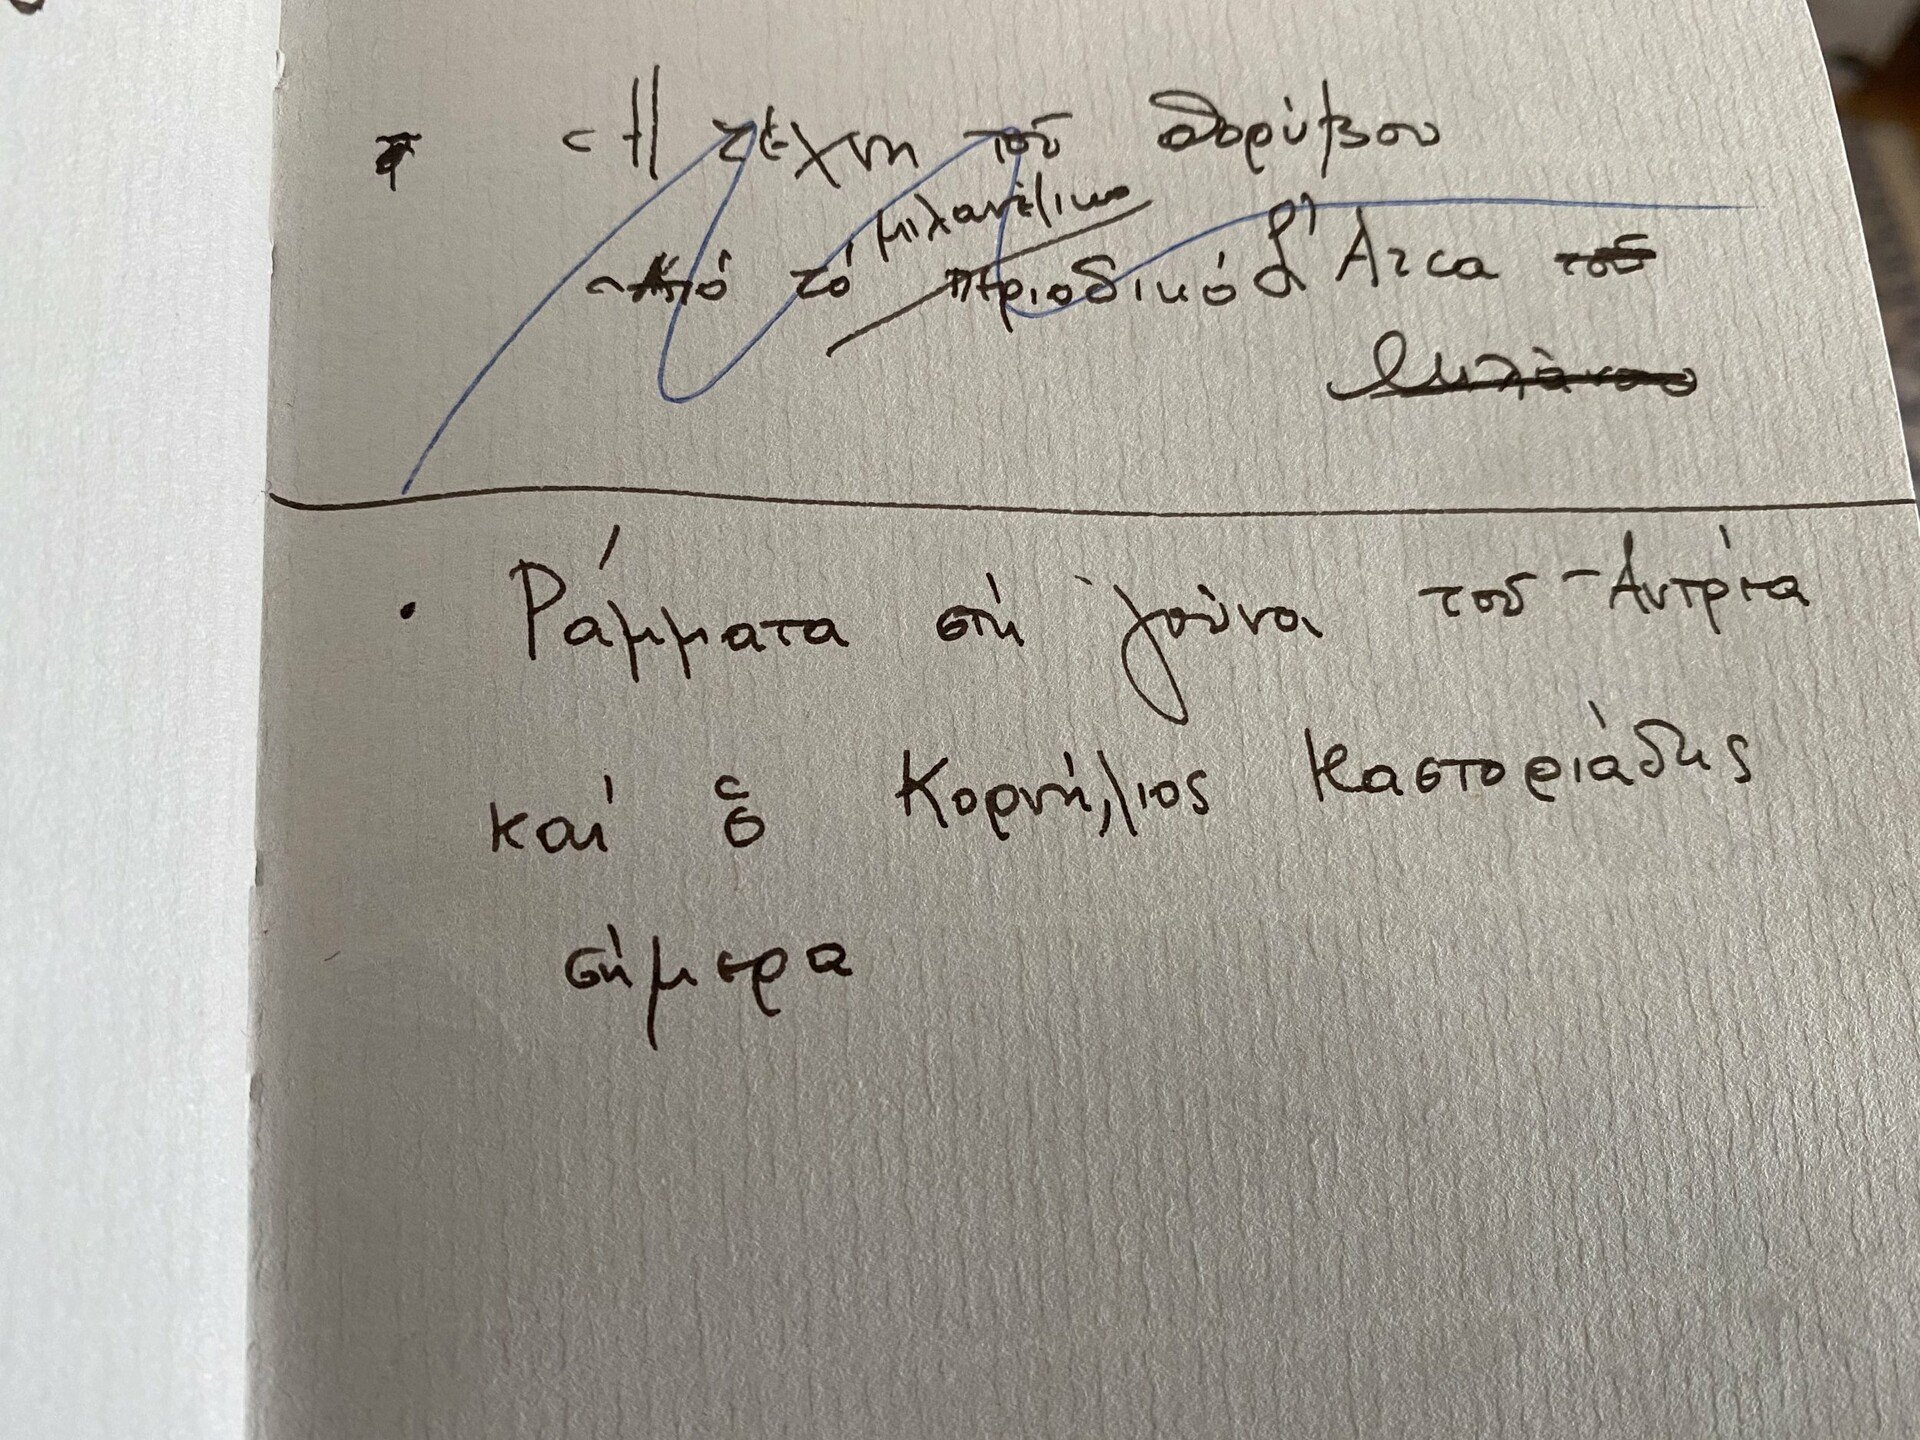 Ἡ τέχνη τοῦ θορύβου
μιλανέζικο
Ἀπό τό περιοδικό L'Arca τοῦ
Μιλάνου
• Ράμματα στή γούνα τοῦ Ἀντρέα
καί ὁ Κορνήλιος Καστοριάδης
σήμερα